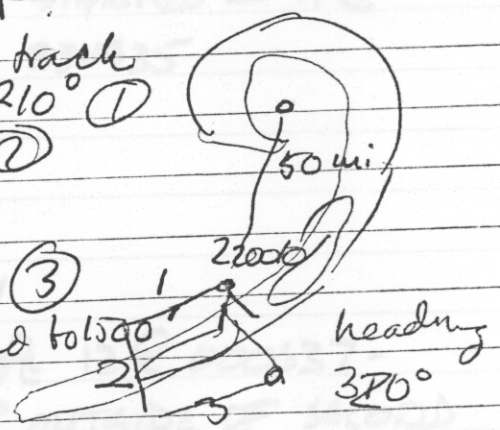 track
210° ①
②
50 mi
22000
③
1
d to 1500
heading
2
3